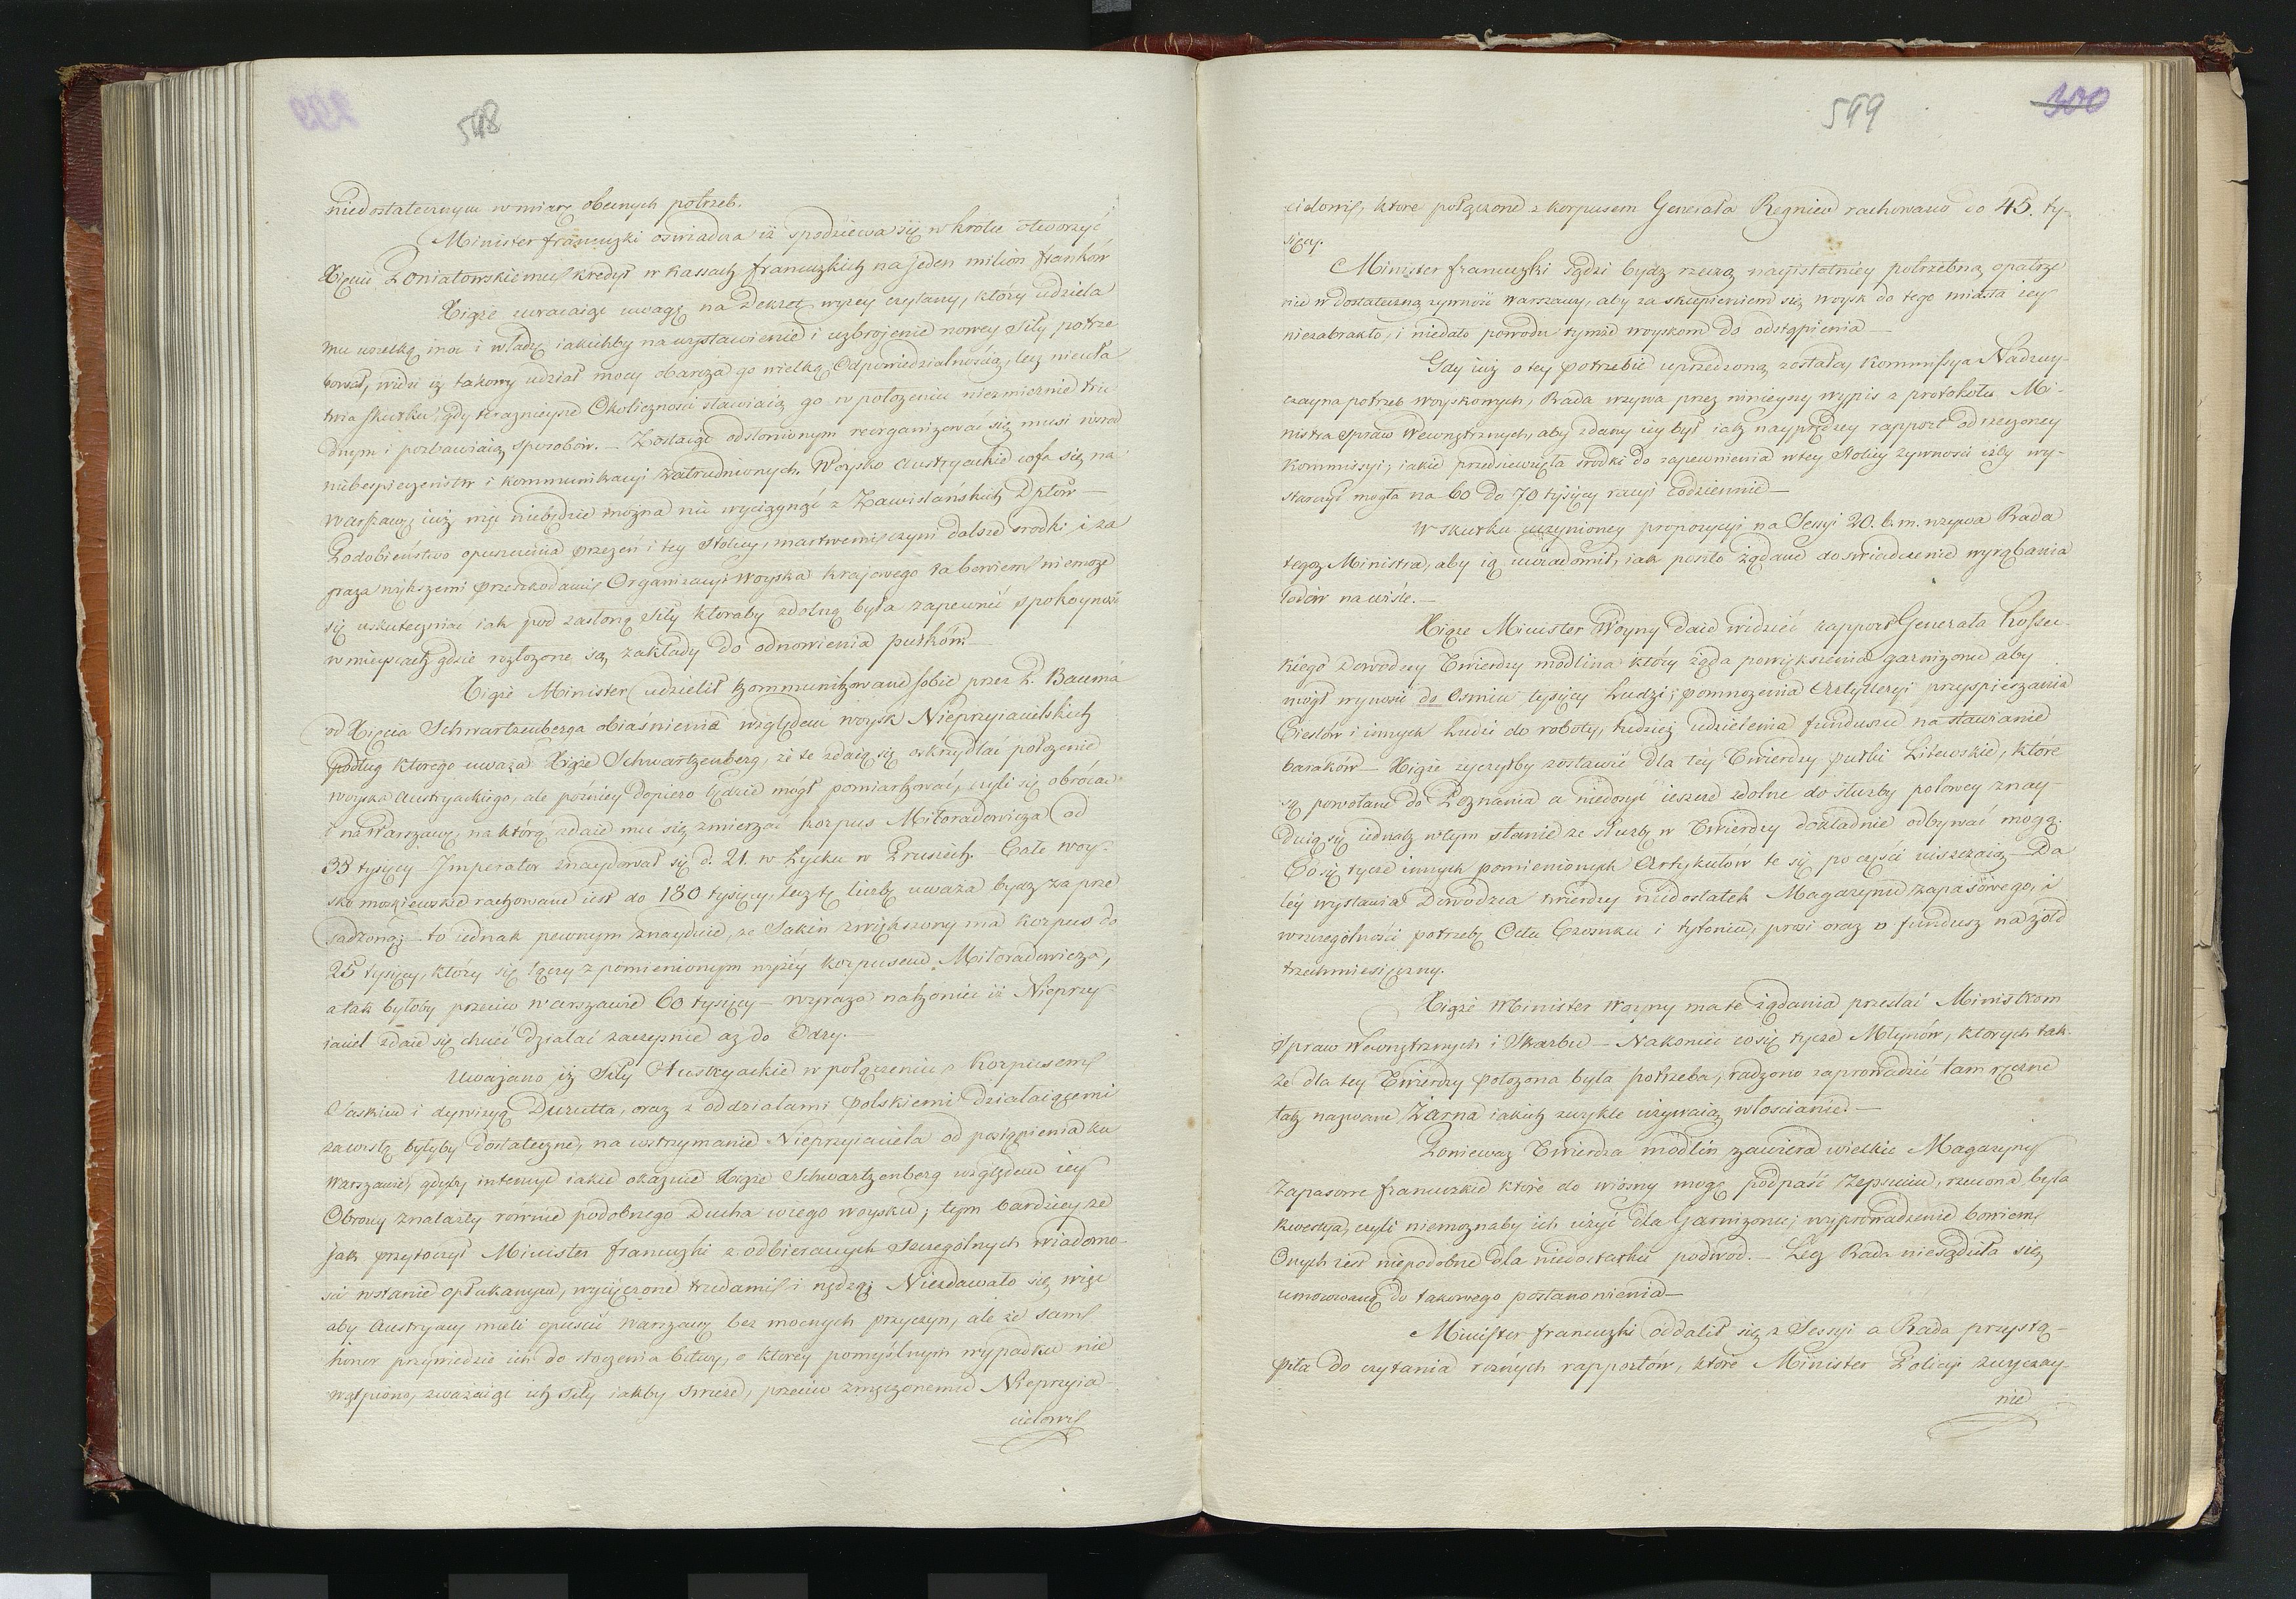 548
niedostatecznym w miarę obecnych potrzeb.
Minister francuzki oswiadcza iż spodziewa się w krotce otworzyć
Xięciu Poniatowskiemu kredyt w kassach francuzkich na jeden milion franków
Xiąże zwracaiąc uwagę na Dekret wyżey czytany, który udziela
mu wszelką moc i władzę iakichby na wystawienie i uzbrojenie nowey siły potrze
bował, widzi iż takowy udział mocy obarcza go wielką Odpowiedzialnością, lecz nieuła
twia skutku, gdy teraznieysze Okoliczności stawiaią go w położeniu niezmiernie tru
dnym i pozbawiaią sposobów. — Zostaiąc odsłonionym reorganizować się musi wśrod
niebespieczeństw i kommunikacyi zatrudnionych. Woysko Austryackie cofa się na
Warszawę, iuż więc niebędzie można nic wyciągnąć z Zawislańskich Dptów —
Podobieństwo opuszczenia przezeń i tey Stolicy, martwemi czyni dalsze srodki i za
graża większemi przeszkodami Organizacyi Woyska krajowego ta bowiem niemoże
się uskuteczniać iak pod zasłoną siły ktoraby zdolną była zapewnić spokoyność
w mieyscach gdzie rozłożone są zakłady do odnowienia pułków. —
Xiąże Minister udzielił kommunikowane sobie przez P. Bauma
od Xięcia Schwartzenberga obiaśnienia względem woysk Nieprzyiacielskich
podług ktorego uważa Xiąże Schwartzenberg, że te zdaią się oskrzydlać położenie
woyska Austryackiego, ale poźniey dopiero będzie mógł pomiarkować, czyli się obróca
i na Warszawę, na którą zdaie mu się zmierzać korpus Miłoradowicza od
35 tysięcy Imperator znaydował się d. 21. w Łycku w Prusiech. — Całe woy-
sko moskiewskie rachowane iest do 180 tysięcy, lecz tę liczbę uważa bydz za prze
sadzoną; — to iednak pewnym znayduie, że Sakin zwiększony ma korpus do
25 tysięcy, który się łączy z pomienionym wyżey korpusem Miłoradowicza,
a tak byłoby przeciw Warszawie 60 tysięcy — wyraza nakoniec iż Nieprzy-
iaciel zdaie się chcieć działać zaczepnie aż do Odry. —
Uważano iż Siły Austryackie w połączeniu z Korpusem
Saskim i dywizyą Durutta, oraz z oddziałami polskiemi działaiącemi
za wisłą byłyby dostateczne, na wstrzymanie Nieprzyiaciela od postąpienia ku
Warszawie, gdyby intencye iakie okazuie Xiąże Schwartzenberg względem iey
Obrony znalazły rownie podobnego Ducha w iego woysku; tym bardziey ze
jak przytoczył Minister francuzki z odbieranych szczególnych wiadomo-
sci w stanie opłukanym, wycięczone trudami i nędzą; Niezdawało się więc
aby Austryacy mieli opuścić Warszawę bez mocnych przyczyn, ale że sam
honor przywiedzie ich do stoczenia bitwy, o ktorey pomyślnym wypadku nie
wątpiono, zważaiąc ich siły iakby świeże, przeciw zmęczonemu Nieprzyia-
cielowi
599
300
cielowi, ktore połączone z korpusem Generała Regnier rachowano do 45. ty-
sięcy.
Minister francuzki sądzi bydz rzeczą nayistotniey potrzebną opatrze
nie w dostateczną żywność Warszawy, aby za skupieniem się woysk do tego miasta iey
niezabrakło, i niedało powodu tymże woyskom do odstąpienia —
Gdy iuż o tey potrzebie uprzedzoną została Kommissya Nadzwy-
czayna potrzeb Woyskowych, Rada wzywa przez ninieyszy wypis z protokołu Mi-
nistra Spraw Wewnętrznych, aby zdany iey był iak nayprędzey rapport od rzeczoney
Kommissyi, iakie przedsiewzięła srodki do zapewnienia w tey Stolicy żywności iżby wy-
starczyć mogła na 60 do 70 tysięcy racyi codziennie —
W skutku uczynioney propozycyi na Sessyi 20. b. m. wzywa Rada
tegoż Ministra, aby ią uwiadomił, iak poszło żądane doswiadczenie wyrąbania
lodów na wiśle. —
Xiąże Minister Woyny daie widzieć rapport Generała Kossec-
kiego Dowodzcy Twierdzy modlina który żąda powiększenia garnizonu aby
mógł wynosić do Osmiu tysięcy Ludzi; pomnożenia Artylleryi przyspieszania
Cieslów i innych Ludzi do roboty, tudzież udzielenia funduszu na stawianie
baraków — Xiąże życzyłby zostawić dla tey Twierdzy pułki Litewskie, które
są powołane do Poznania a niedosyć ieszcze zdolne do służby polowey znay-
duią się iednak w tym stanie że służbę w Twierdzy dokładnie odbywać mogą.
Co się tycze innych pomienionych Artykułów te się po części uiszczaią — Da
ley wystawia Dowodzca twierdzy niedostatek Magazynu zapasowego, i
w szczególności potrzebę Octu Czosnku i tytoniu; prosi oraz o fundusz na żołd
trzechmiesięczny.
Xiąże Minister Woyny ma te żądania przesłać Ministrom
Spraw Wewnętrznych i Skarbu — Nakoniec co się tycze Młynów, ktorych tak-
że dla tey Twierdzy położona była potrzeba, radzono zaprowadzić tam ręczne
tak nazwane Żarna iakich zwykle używaią włoscianie. —
Ponieważ Twierdza modlin zawiera wielkie Magazyny
Zapasowe francuzkie które do wiosny mogą podpaść Zepsuciu, rzucona była
kwestya, czyli niemożnaby ich użyć dla Garnizonu; wyprowadzenie bowiem
Onych iest niepodobne dla niedostatku podwod. — Lecz Rada niesądziła się
umocowaną do takowego postanowienia —
Minister francuzki oddalił się z Sessyi a Rada przystą-
piła do czytania rożnych rapportów, które Minister Policyi zwyczay-
nie